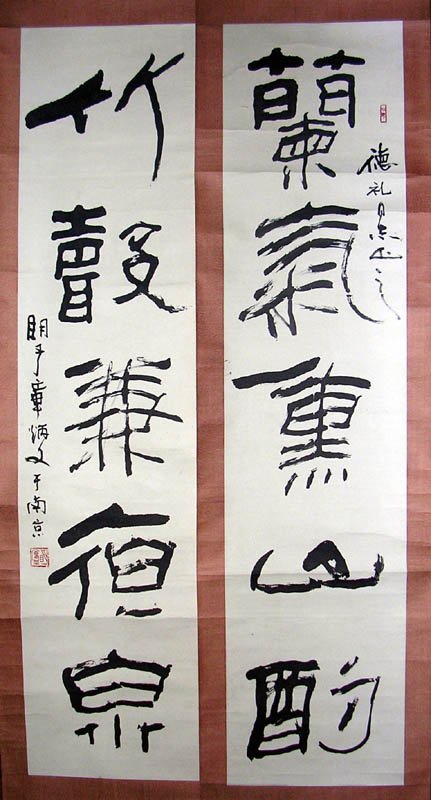 蘭氣熏山酌
德礼同志正之
竹聲兼夜泉
章炳文于南京